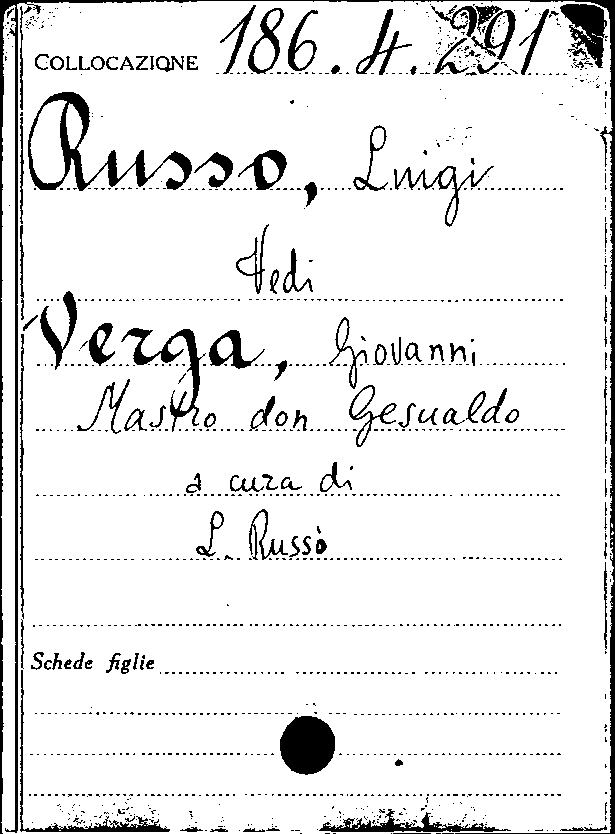 COLLOCAZIONE 186.4.291
Russo, Luigi
Vedi
Verga, Giovanni
Mastro don Gesualdo
a cura di
L. Russo
Schede figlie